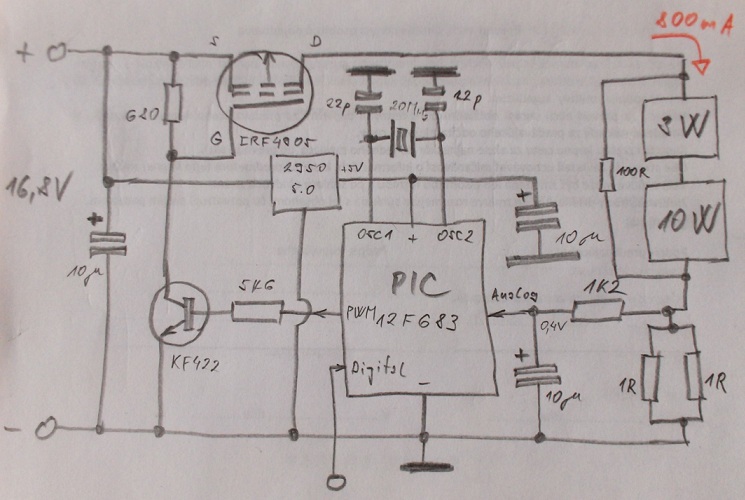 800mA
+
S
D
22p
20MHz
22p
620
G
IRF4905
3W
2950
5.0
+5V
100R
10W
16,8V
+
10µ
+
10µ
OSC1
+
OSC2
PIC
12F683
Analog
1K2
5K6
PWM
0,4V
KF422
Digital
+
10µ
1R
1R
-
-